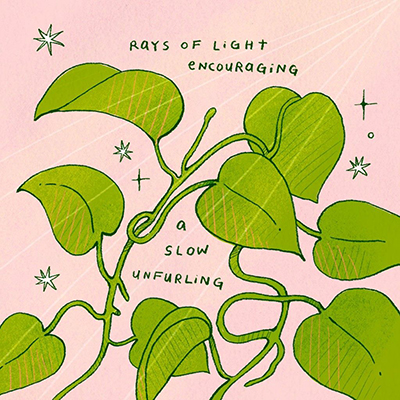 RAYS OF LIGHT
ENCOURAGING
a
SLOW
UNFURLING